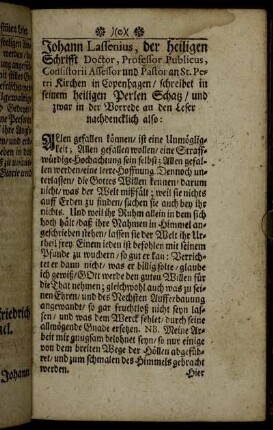 )(o)(
Johann Lassenius, der heiligen
Schrifft Doctor, Professor Publicus,
Consistorii Assessor und Pastor an St. Pe-
tri Kirchen in Copenhagen / schreibet in
seinem heiligen Perlen Schatz / und
zwar in der Vorrede an den Leser
nachdencklich also:
Allen gefallen können / ist eine Unmöglig-
keit / Allen gefallen wollen / eine Straff-
würdige Hochachtung sein selbst; Allen gefal-
len werden / eine leere Hoffnung. Dennoch un-
terlassen / die Gottes Willen kennen / darum
nicht / was der Welt mißfält; weil sie nichts
auff Erden zu finden / suchen sie auch bey ihr
nichts. Und weil ihr Ruhm allein in dem sich
hoch hält / daß ihre Nahmen in Himmel an-
geschrieben stehen / lassen sie der Welt ihr Ur-
theil frey. Einem ieden ist befohlen mit seinem
Pfunde zu wuchern / so gut er kan: Verrich-
tet er dann nicht / was er billig solte / glaube
ich gewiß / Gott werde den guten Willen für
die That nehmen; gleichwohl auch was zu sei-
nen Ehren / und des Nechsten Aufferbauung
angewandt / so gar fruchtloß nicht seyn las-
sen / und was dem Wercke fehlet / durch seine
allmögende Gnade ersetzen. NB. Meine Ar-
beit mir gnugsam belohnet seyn / so nur einige
von dem breiten Wege der Höllen abgefüh-
ret / und zum schmalen des Himmels gebracht
werden.
Hier
friedrich
nel.
Johann